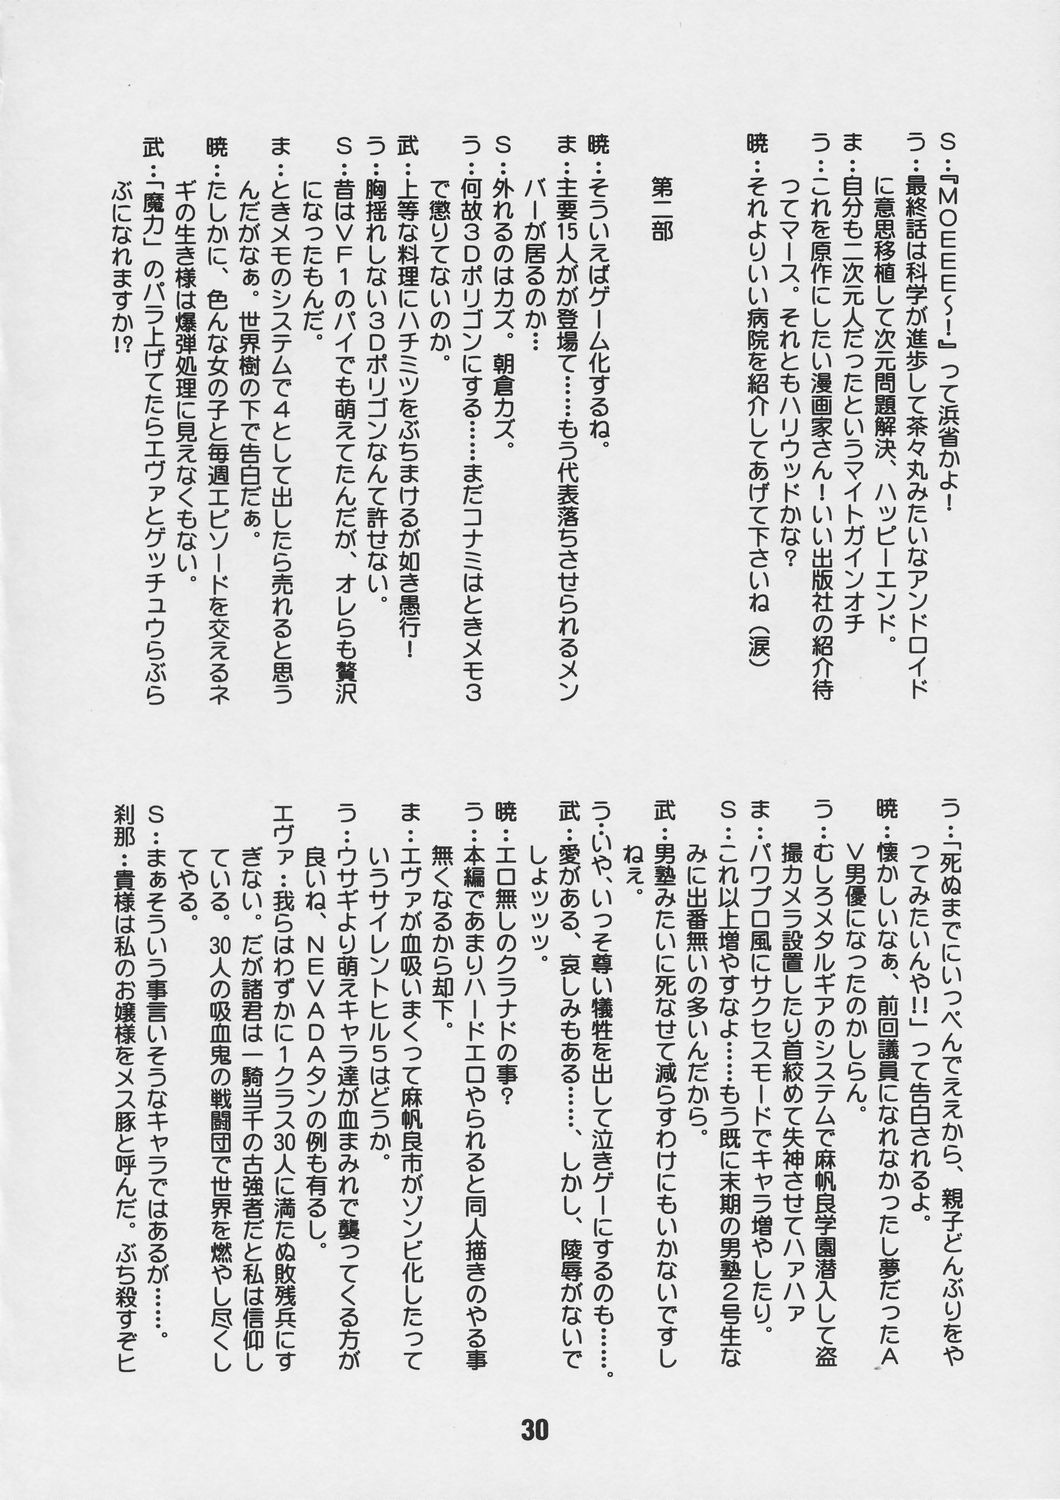 S：『MOEEE～！』って浜省かよ！
う：最終話は科学が進歩して茶々丸みたいなアンドロイド
に意思移植して次元問題解決、ハッピーエンド。
ま：自分も二次元人だったというマイトガインオチ
う：これを原作にしたい漫画家さん！いい出版社の紹介待
ってマース。それともハリウッドかな？
暁：それよりいい病院を紹介してあげて下さいね（涙）
第二部
暁：そういえばゲーム化するね。
ま：主要15人がが登場て……もう代表落ちさせられるメン
バーが居るのか…
S：外れるのはカズ。朝倉カズ。
う：何故３Dポリゴンにする……まだコナミはときメモ３
で懲りてないのか。
武：上等な料理にハチミツをぶちまけるが如き愚行！
う：胸揺れしない３Dポリゴンなんて許せない。
S：昔はVF１のパイでも萌えてたんだが、オレらも贅沢
になったもんだ。
ま：ときメモのシステムで４として出したら売れると思う
んだがなぁ。世界樹の下で告白だぁ。
暁：たしかに、色んな女の子と毎週エピソードを交えるネ
ギの生き様は爆弾処理に見えなくもない。
武：「魔力」のパラ上げてたらエヴァとゲッチュウらぶら
ぶになれますか!?
う：「死ぬまでにいっぺんでええから、親子どんぶりをや
ってみたいんや!!」って告白されるよ。
暁：懐かしいなぁ、前回議員になれなかったし夢だったA
V男優になったのかしらん。
う：むしろメタルギアのシステムで麻帆良学園潜入して盗
撮カメラ設置したり首絞めて失神させてハァハァ
ま：パワプロ風にサクセスモードでキャラ増やしたり。
S：これ以上増やすなよ……もう既に末期の男塾２号生な
みに出番無いの多いんだから。
武：男塾みたいに死なせて減らすわけにもいかないですし
ねぇ。
う：いや、いっそ尊い犠牲を出して泣きゲーにするのも……。
武：愛がある、哀しみもある……、しかし、陵辱がないで
しょッッッ。
暁：エロ無しのクラナドの事？
う：本編であまりハードエロやられると同人描きのやる事
無くなるから却下。
ま：エヴァが血吸いまくって麻帆良市がゾンビ化したって
いうサイレントヒル５はどうか。
う：ウサギより萌えキャラ達が血まみれで襲ってくる方が
良いね、NEVADAタンの例も有るし。
エヴァ：我らはわずかに１クラス30人に満たぬ敗残兵にす
ぎない。だが諸君は一騎当千の古強者だと私は信仰し
ている。30人の吸血鬼の戦闘団で世界を燃やし尽くし
てやる。
S：まぁそういう事言いそうなキャラではあるが……。
刹那：貴様は私のお嬢様をメス豚と呼んだ。ぶち殺すぞヒ
30